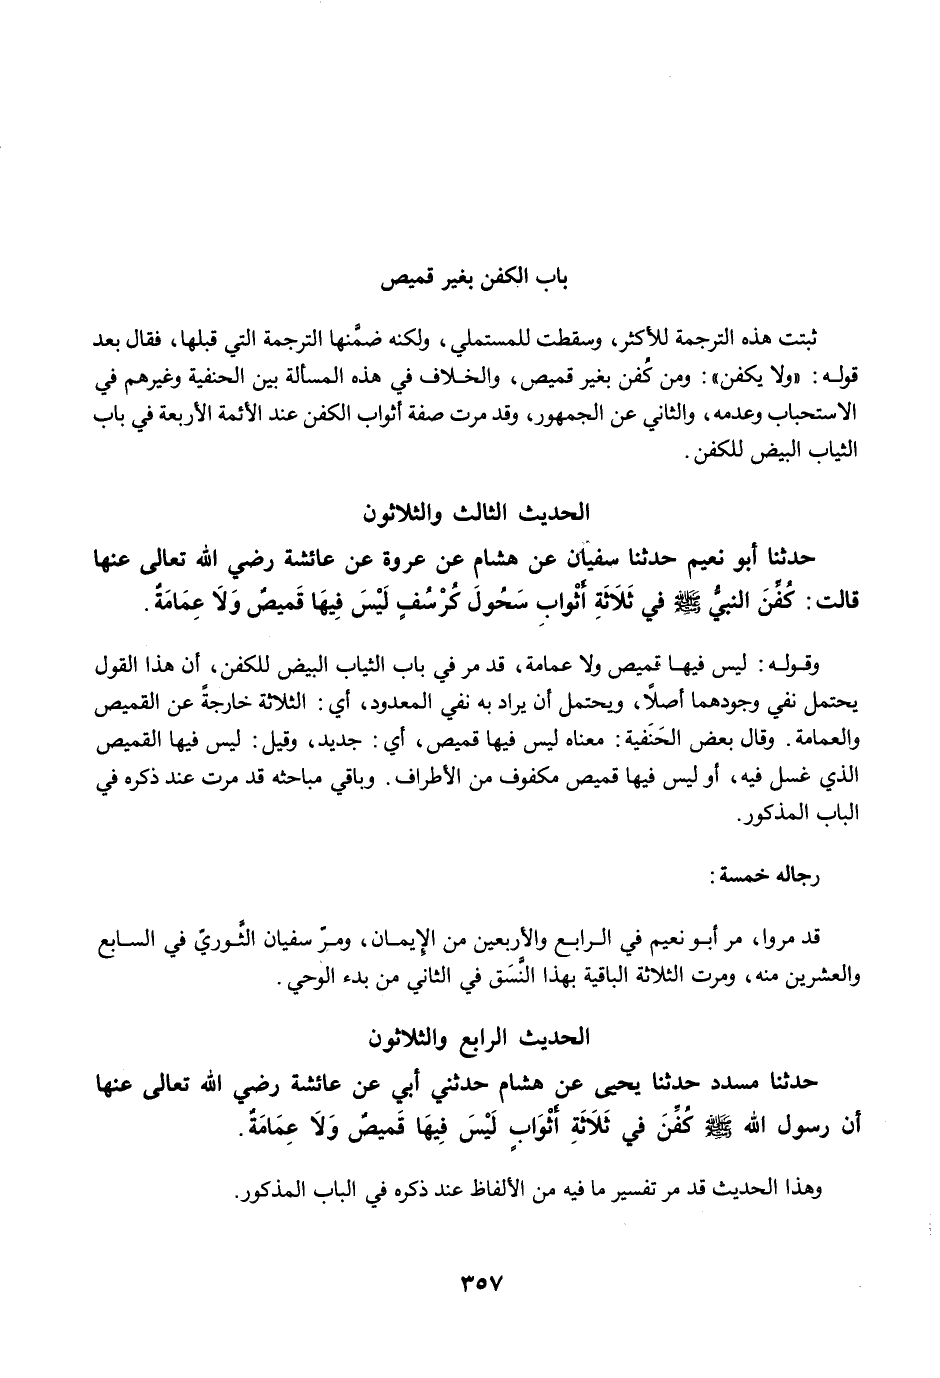 باب الكفن بغير قميص
ثبتت هذه الترجمة للأكثر، وسقطت للمستملي، ولكنه ضمَّنها الترجمة التي قبلها، فقال بعد
قوله: «ولا يكفن»: ومن كُفن بغير قميص، والخلاف في هذه المسألة بين الحنفية وغيرهم في
الاستحباب وعدمه، والثاني عن الجمهور، وقد مرت صفة أثواب الكفن عند الأئمة الأربعة في باب
الثياب البيض للكفن.
الحديث الثالث والثلاثون
حدثنا أبو نعيم حدثنا سفيان عن هشام عن عروة عن عائشة رضي الله تعالى عنها
قالت: كُفِّنَ النبيُّ ﷺ في ثَلَاثَةِ أَثْوابِ سَحُولَ كُرْسُفٍ لَيْسَ فِيهَا قَميصٌ وَلَا عِمَامَةٌ.
وقوله: ليس فيها قميص ولا عمامة، قد مر في باب الثياب البيض للكفن، أن هذا القول
يحتمل نفي وجودهما أصلًا، ويحتمل أن يراد به نفي المعدود، أي: الثلاثة خارجةً عن القميص
والعمامة. وقال بعض الحَنَفية: معناه ليس فيها قميص، أي: جديد، وقيل: ليس فيها القميص
الذي غسل فيه، أو ليس فيها قميص مكفوف من الأطراف. وباقي مباحثه قد مرت عند ذكره في
الباب المذكور.
رجاله خمسة:
قد مروا، مر أبو نعيم في الرابع والأربعين من الإيمان، ومرّ سفيان الثَّوريّ في السابع
والعشرين منه، ومرت الثلاثة الباقية بهذا النَّسَق في الثاني من بدء الوحي.
الحديث الرابع والثلاثون
حدثنا مسدد حدثنا يحيى عن هشام حدثني أبي عن عائشة رضي الله تعالى عنها
أن رسول الله ﷺ كُفِّنَ في ثَلَاثَةِ أَثْوَابٍ لَيْسَ فِيهَا قَميصٌ وَلَا عِمَامَةٌ.
وهذا الحديث قد مر تفسير ما فيه من الألفاظ عند ذكره في الباب المذكور.
٣٥٧